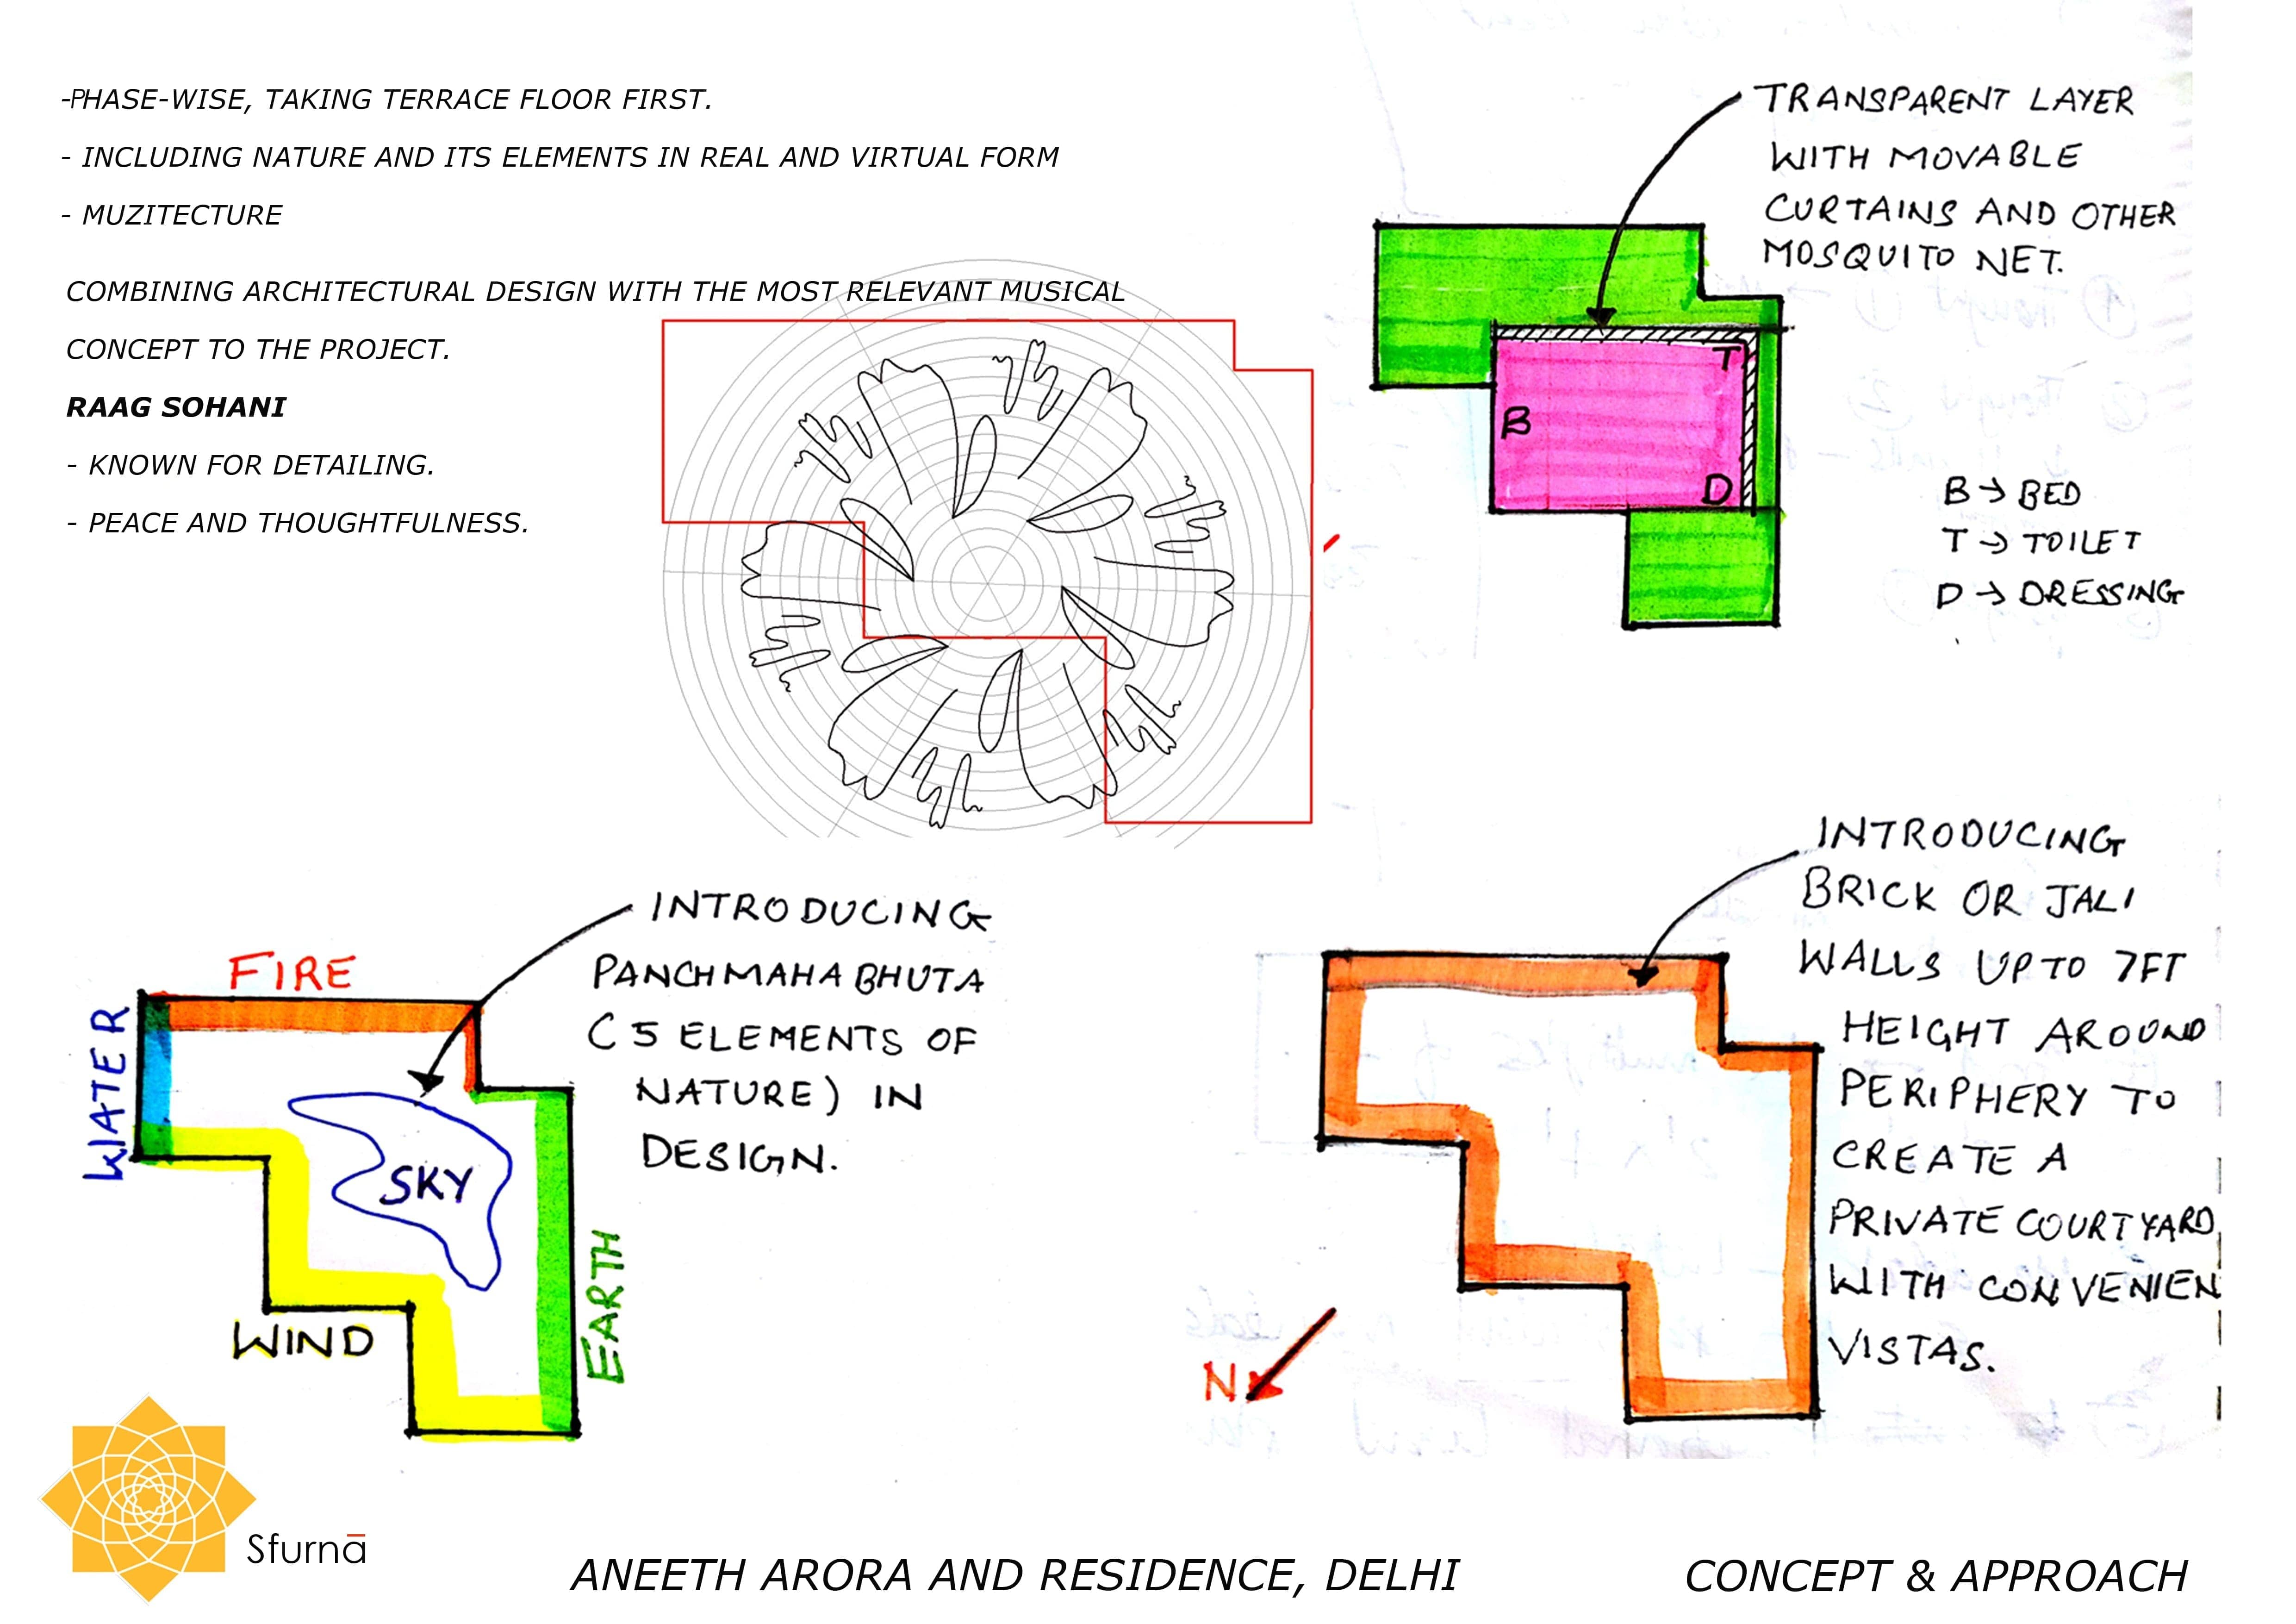 -PHASE-WISE, TAKING TERRACE FLOOR FIRST.
- INCLUDING NATURE AND ITS ELEMENTS IN REAL AND VIRTUAL FORM
- MUZITECTURE
COMBINING ARCHITECTURAL DESIGN WITH THE MOST RELEVANT MUSICAL
CONCEPT TO THE PROJECT.
RAAG SOHANI
- KNOWN FOR DETAILING.
- PEACE AND THOUGHTFULNESS.
TRANSPARENT LAYER
WITH MOVABLE
CURTAINS AND OTHER
MOSQUITO NET.
T
B
D
B → BED
T → TOILET
D → DRESSING
INTRODUCING
PANCHMAHABHUTA
( 5 ELEMENTS OF
NATURE) IN
DESIGN.
FIRE
WATER
SKY
WIND
EARTH
INTRODUCING
BRICK OR JALI
WALLS UPTO 7FT
HEIGHT AROUND
PERIPHERY TO
CREATE A
PRIVATE COURTYARD
WITH CONVENIEN
VISTAS.
N
Sfurnā
ANEETH ARORA AND RESIDENCE, DELHI
CONCEPT & APPROACH